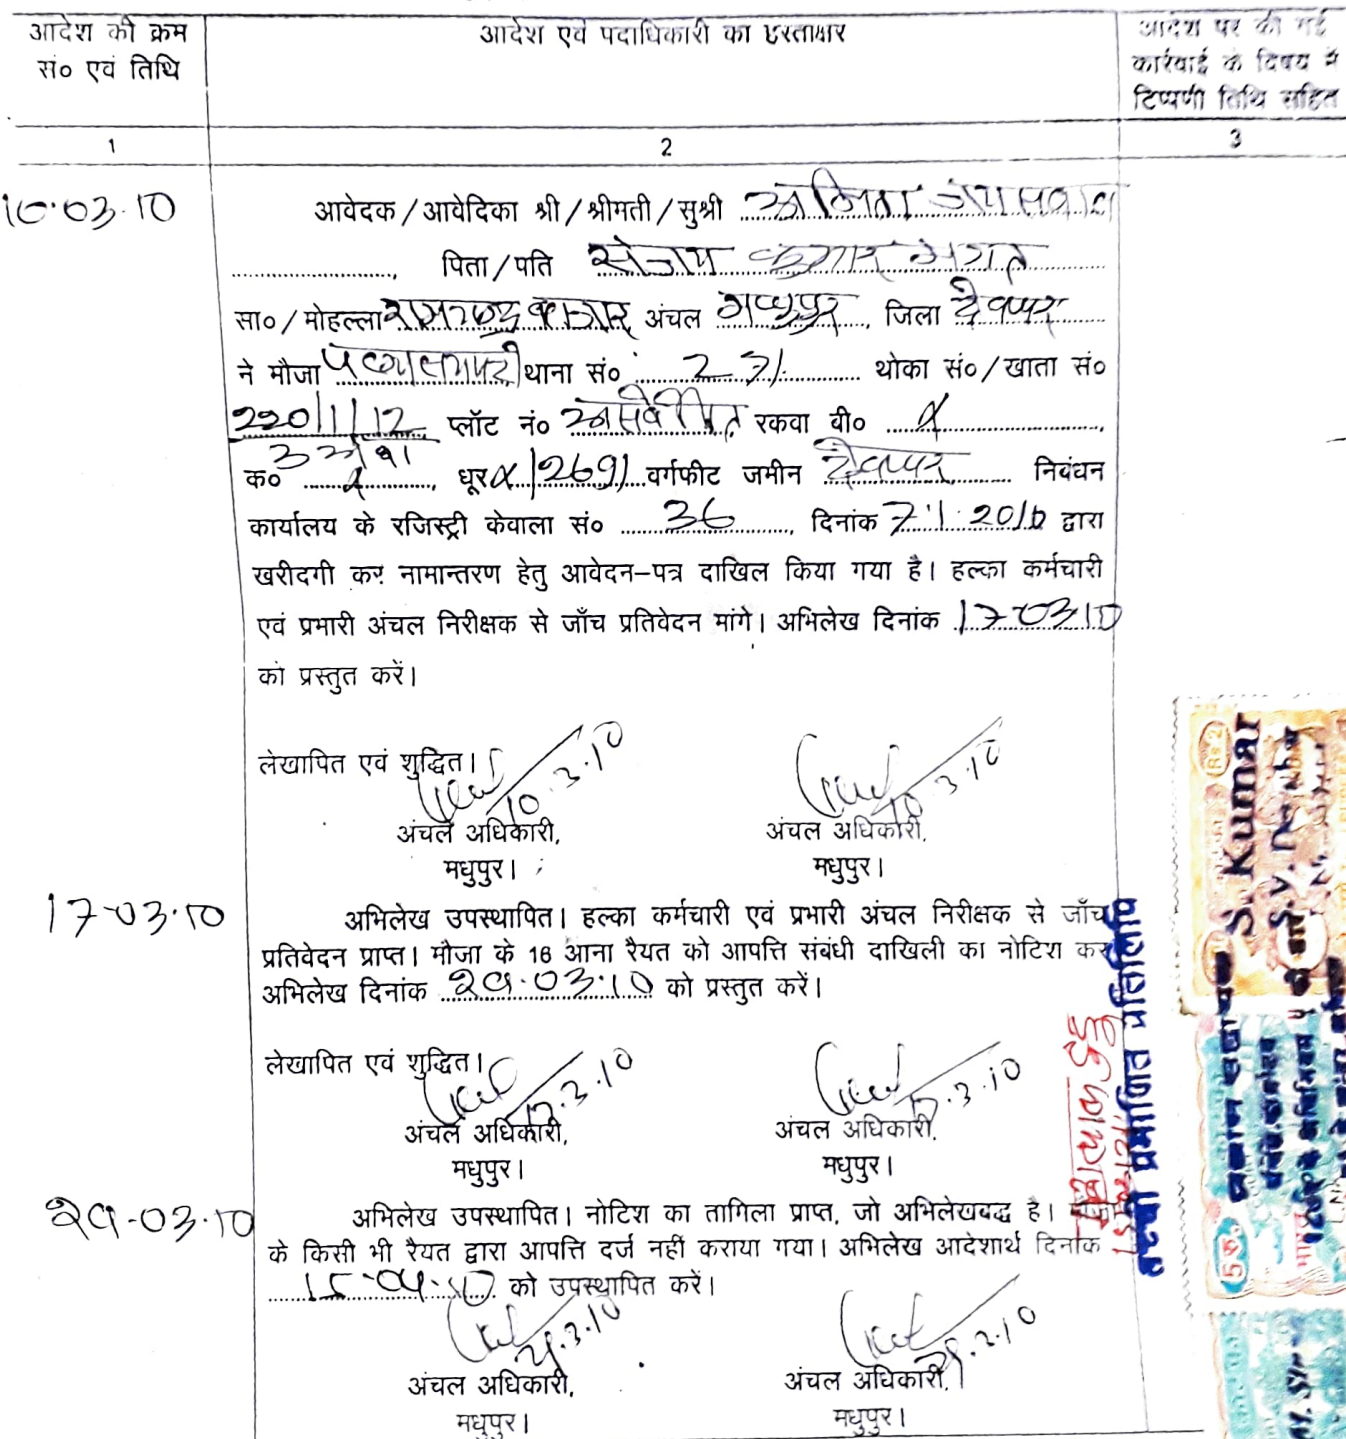 आदेश की क्रम
सं० एवं तिथि
आदेश एवं पदाधिकारी का हस्ताक्षर
आदेश पर की गई
कार्रवाई के विषय में
टिप्पणी तिथि सहित
1
2
3
10.03.10
आवेदक / आवेदिका श्री / श्रीमती / सुश्री अनिता जायसवाल
पिता / पति संजय कुमार भगत
सा० / मोहल्ला बाजार अंचल मधुपुर, जिला देवघर
ने मौजा थाना सं० 231 थोका सं० / खाता सं०
220/1/12 प्लॉट नं० रकवा बी० x
क० x, धूर x/2691 वर्गफीट जमीन देवघर निबंधन
कार्यालय के रजिस्ट्री केवाला सं० 36, दिनांक 7.1.2010 द्वारा
खरीदगी कर नामान्तरण हेतु आवेदन-पत्र दाखिल किया गया है। हल्का कर्मचारी
एवं प्रभारी अंचल निरीक्षक से जाँच प्रतिवेदन मांगे। अभिलेख दिनांक 17-03-10
को प्रस्तुत करें।
लेखापित एवं शुद्धित।
10.3.10
10.3.10
अंचल अधिकारी,
मधुपुर।
अंचल अधिकारी,
मधुपुर।
17-03.10
अभिलेख उपस्थापित। हल्का कर्मचारी एवं प्रभारी अंचल निरीक्षक से जाँच
प्रतिवेदन प्राप्त। मौजा के 16 आना रैयत को आपत्ति संबंधी दाखिली का नोटिश कर
अभिलेख दिनांक 29.03.10 को प्रस्तुत करें।
लेखापित एवं शुद्धित।
17.3.10
17.3.10
अंचल अधिकारी,
मधुपुर।
अंचल अधिकारी,
मधुपुर।
29-03.10
अभिलेख उपस्थापित। नोटिश का तामिला प्राप्त, जो अभिलेखबद्ध है।
के किसी भी रैयत द्वारा आपत्ति दर्ज नहीं कराया गया। अभिलेख आदेशार्थ दिनांक
15-04-10 को उपस्थापित करें।
29.3.10
अंचल अधिकारी,
मधुपुर।
अंचल अधिकारी,
मधुपुर।
सच्ची प्रमाणित प्रतिलिपि
S. Kumar
Rs 2
5 रु.